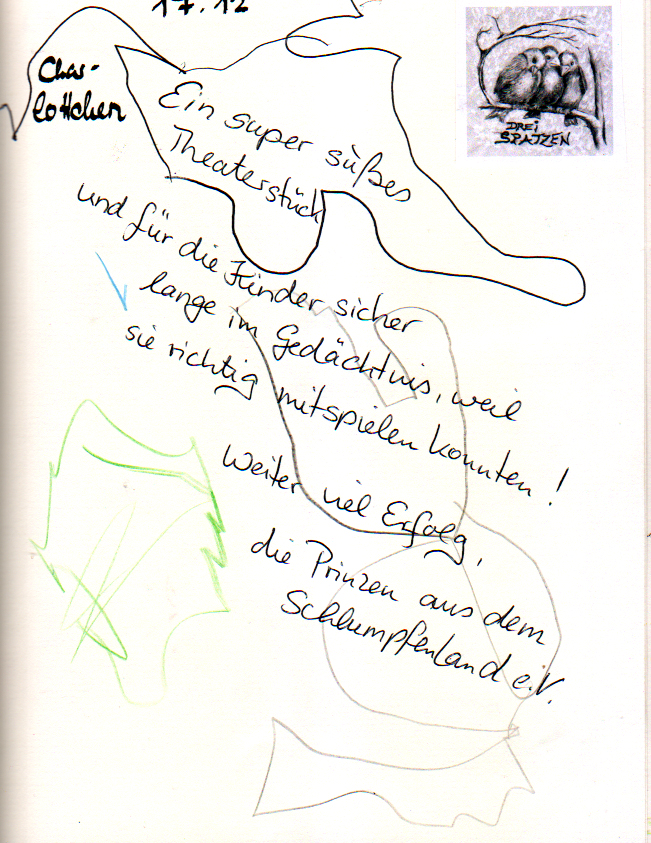 17.12
Char-
lottchen
DREI
SPATZEN
Ein super süßes
Theaterstück
und für die Kinder sicher
lange im Gedächtnis, weil
sie richtig mitspielen konnten!
Weiter viel Erfolg,
die Prinzen aus dem
Schlumpfenland e.V.